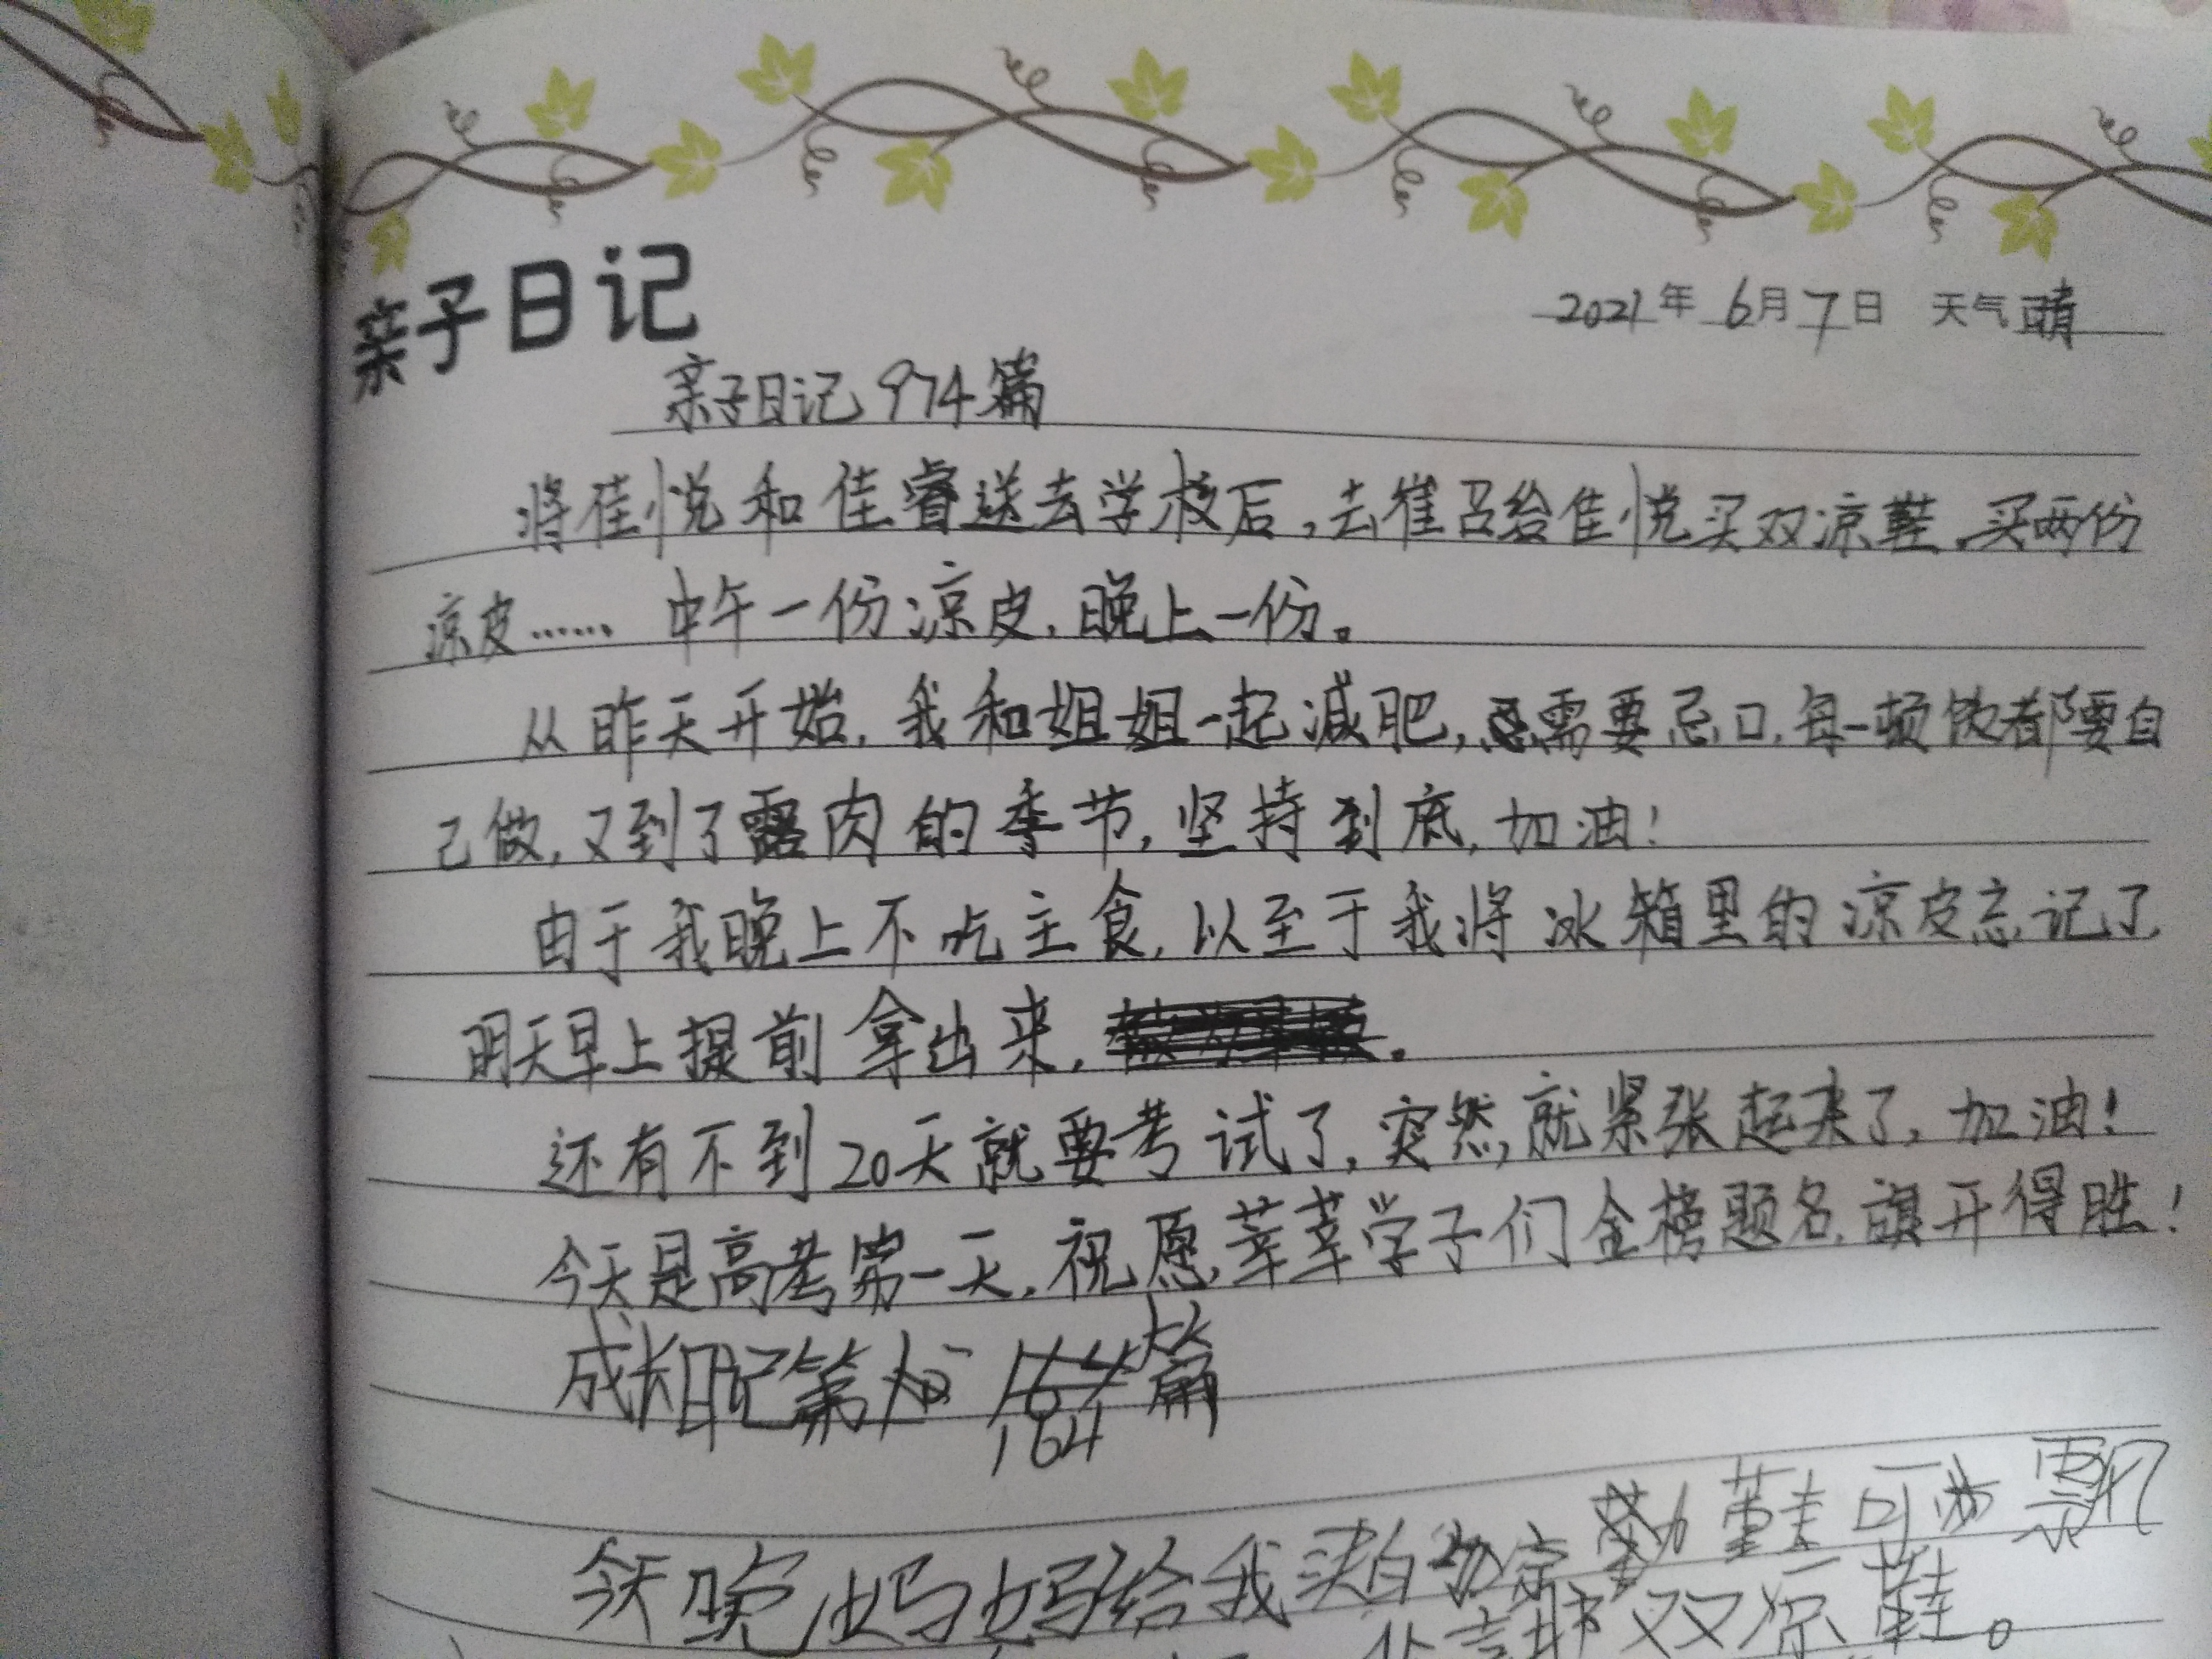 亲子日记
2021年 6月7日 天气晴
亲子日记974篇
将佳悦和佳睿送去学校后,去崔召给佳悦买双凉鞋,买两份
凉皮…… 中午一份凉皮,晚上一份。
从昨天开始,我和姐姐一起减肥,需要忌口,每一顿饭都要自
己做,又到了露肉的季节,坚持到底,加油!
由于我晚上不吃主食,以至于我将冰箱里的凉皮忘记了,
明天早上提前拿出来,。
还有不到20天就要考试了,突然就紧张起来了,加油!
今天是高考第一天,祝愿莘莘学子们金榜题名,旗开得胜!
成长日记第164篇
今天晚妈妈给我买的凉鞋可
双凉鞋。